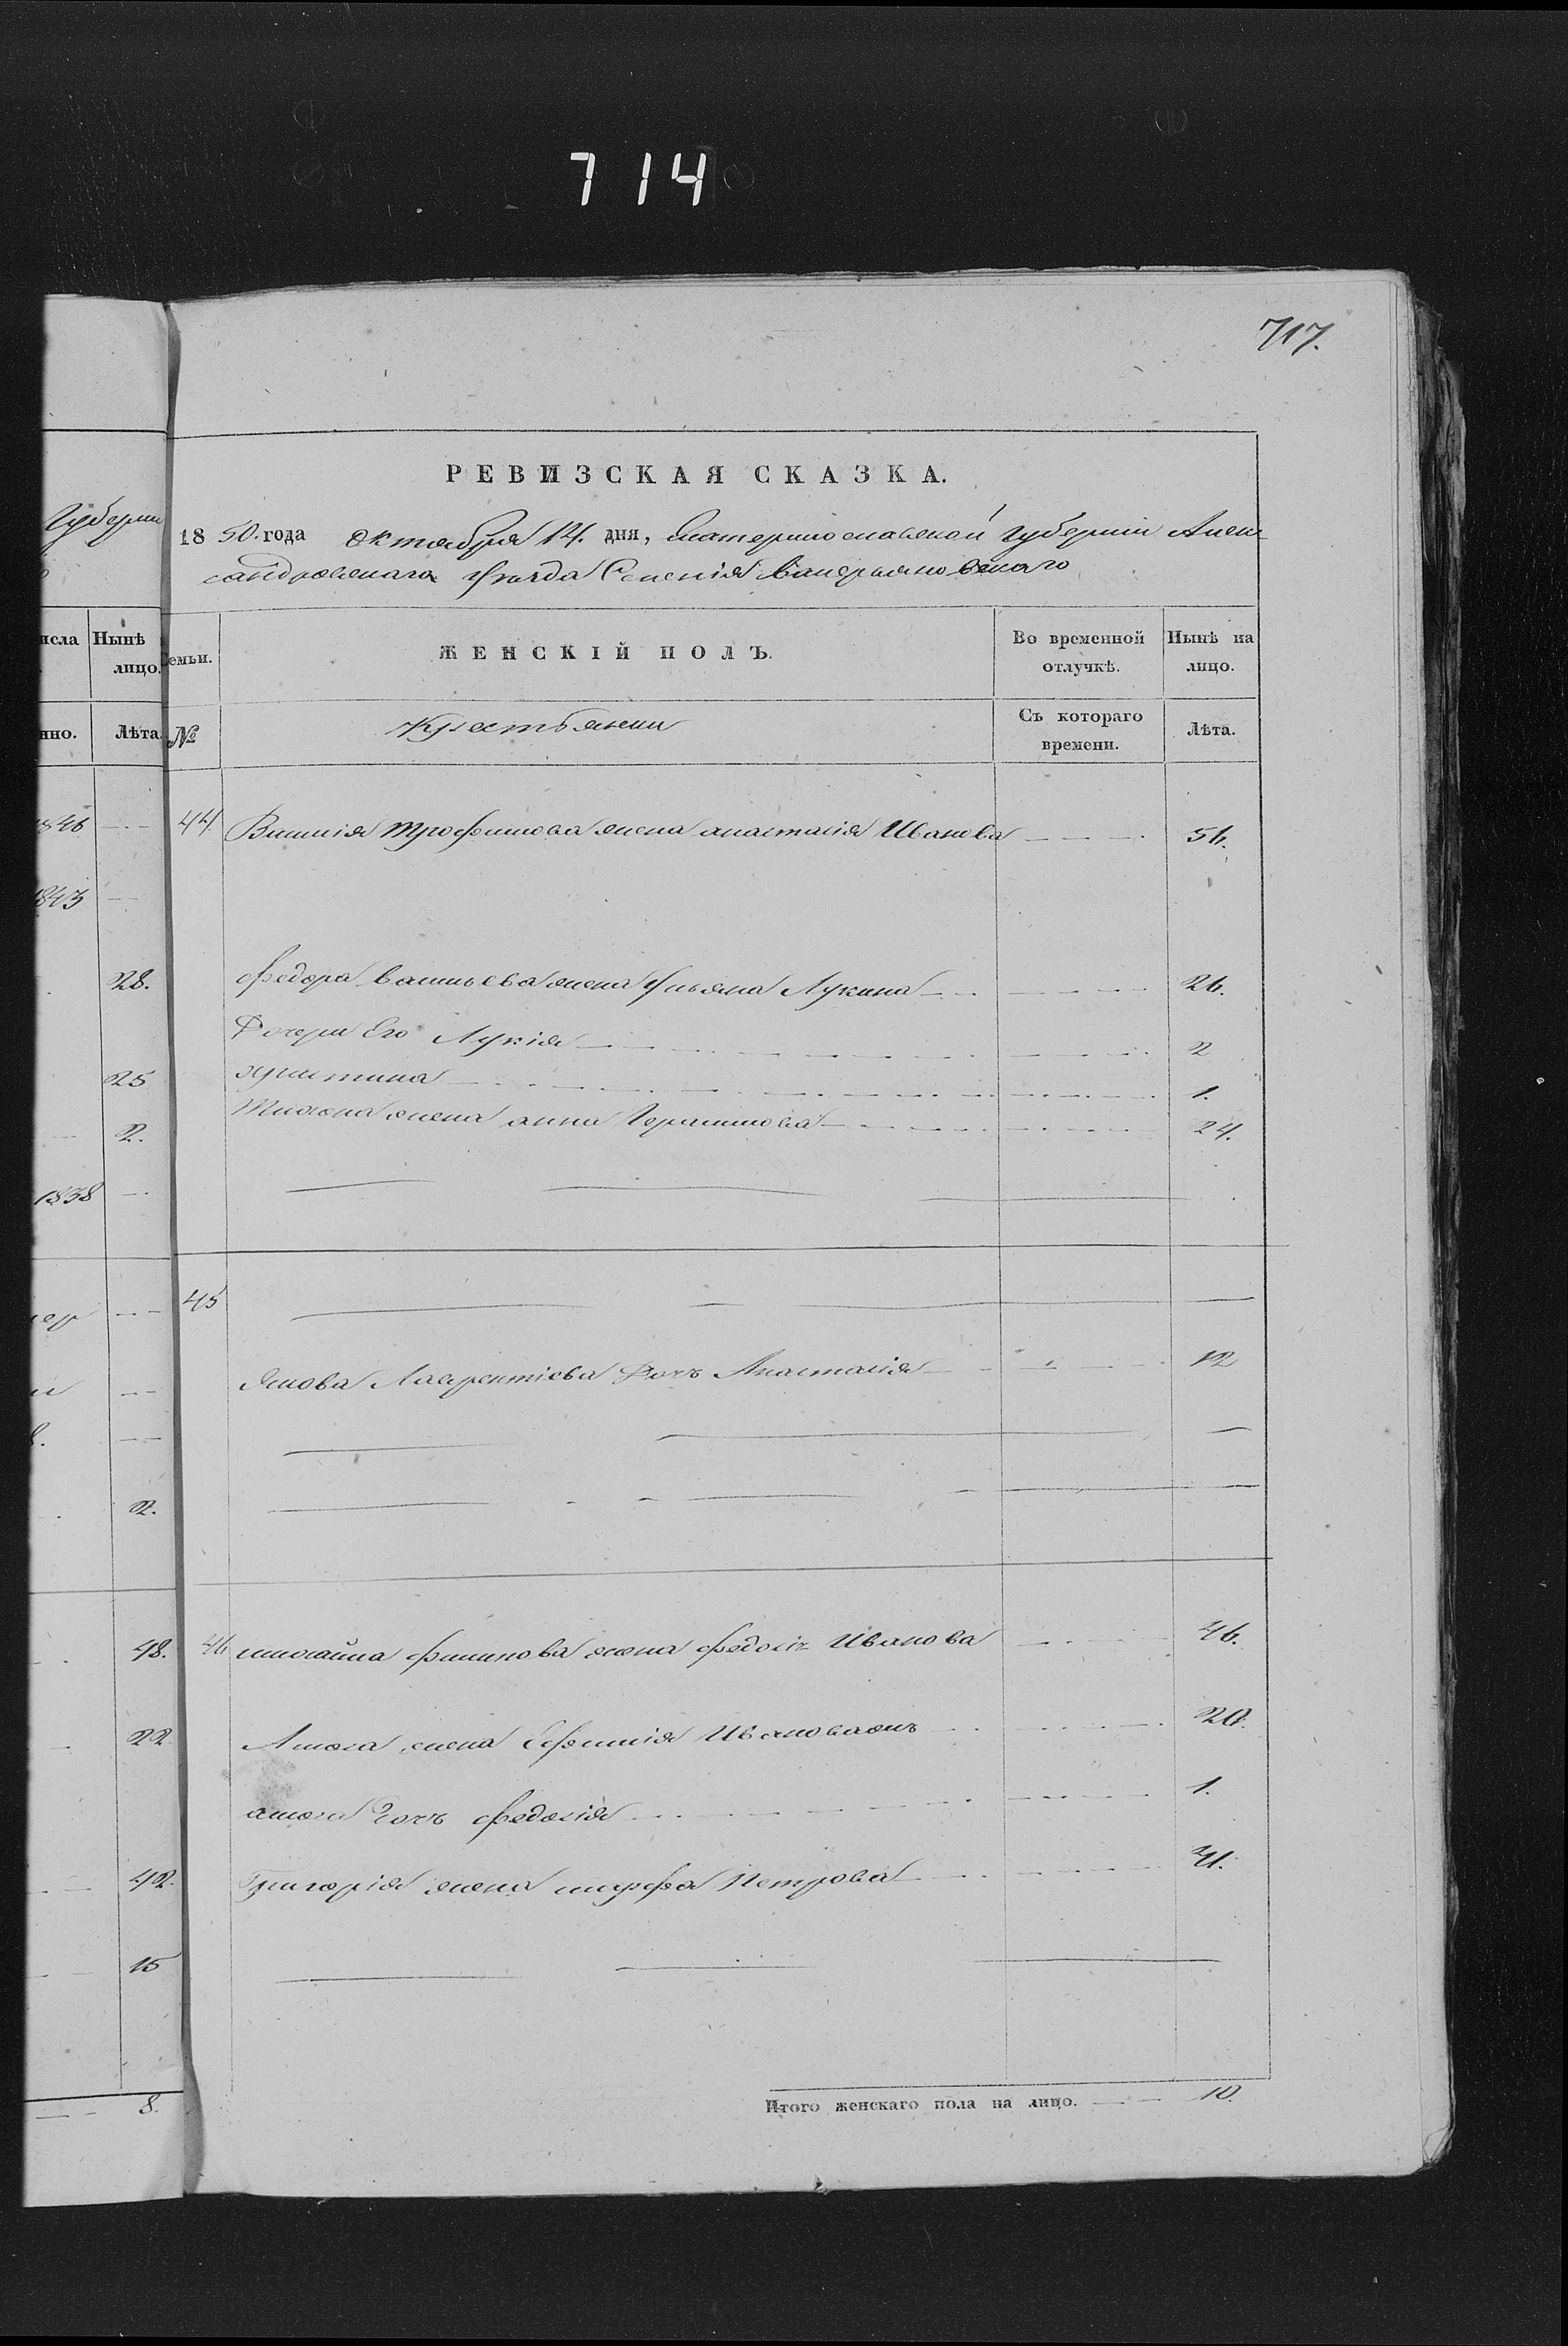 714
717.
РЕВИЗСКАЯ СКАЗКА.
Губерніи
1850. года Октября 14. дня, Екатеринославской губерніи Алек
сандровскаго Уѣзда Селенія Валерьяновскаго
исла
Нынѣ
лицо.
Семьи.
ЖЕНСКІЙ ПОЛЪ.
Во временной
отлучкѣ.
Нынѣ на
лицо.
нно.
Лѣта.
№
Крестьянъ
Съ котораго
времени.
Лѣта.
1846
44. Василія Трофимова жена анастасія Иванова 56.
1843
28. Федора васильева жена Ульяна Лукина 26.
Дочери Его Лукія 2
25 христина 1.
2. Тихона жена анна Герасимова 24.
1838
45
Якова Лаврентіева Дочь Анастасія 12
2.
48. 46 михайла филипова жена федосія Иванова 46.
22 жена Ефимія 20.
дочь федосія 1.
42. Григорія жена марфа Петрова 41.
15
8.
Итого женскаго пола на лицо. 10.